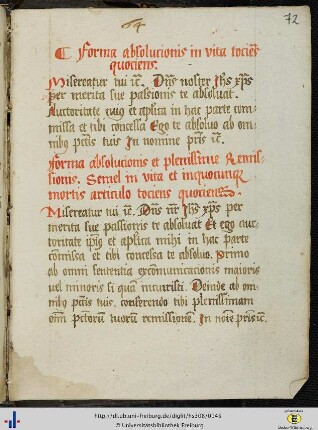 64
72
Forma absolucionis in vita tociens
quociens.
Misereatur tui ꝛc. Dns noster Ihs xps
per merita sue passionis te absoluat.
Auctoritate eius et aplica in hac parte com-
missa et tibi concessa Ego te absoluo ab om-
nibꝫ pctis tuis In nomine pris ꝛc.
Forma absolucionis et plenissime Remis-
sionis. Semel in vita et in quocunqꝫ
mortis articulo tociens quociens
Misereatur tui ꝛc. Dns nr Ihs xps per
merita sue passionis te absoluat Et ego auc-
toritate ipius et aplica mihi in hac parte
comissa et tibi concessa te absoluo. Primo
ab omni sententia excomunicacionis maioris
vel minoris si quam incurristi. Deinde ab om-
nibꝫ pctis tuis. conferendo tibi plenissimam
omm pctorum tuorum remissionem. In noie pris ꝛc.
http://dl.ub.uni-freiburg.de/diglit/hs308/0145
© Universitätsbibliothek Freiburg